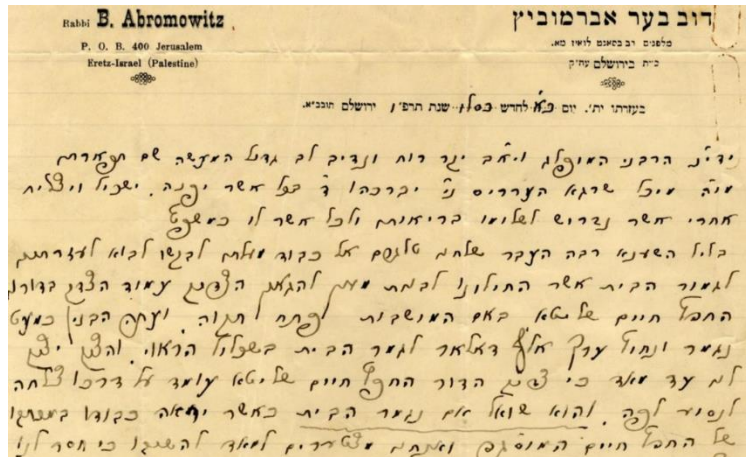 Rabbi B. Abromowitz
P. O. B. 400 Jerusalem
Eretz-Israel (Palestine)
דוב בער אברמוביץ
מלפנים רב בסאנט לואיז מא.
כ״ת בירושלם עה״ק
בעזרתו ית׳. יום כ״א לחדש כסלו שנת תרפ״ו ירושלם תובב״א.
ידי״נ הרבני המופלג ויר״א יקר רוח ונדיב לב גדול המעשה שם תפארתו
מו״ה מיכל שרגא נ״י יברכהו ד׳ בכל אשר יפנה ישכיל ויצליח
אחרי אשר נדרוש לשלומו בריאותו ולכל אשר לו כמשפט
בליל השענא רבה העבר שלחתי טלגרם אל כבוד מעלתו לבקשו לבוא לעזרתנו
לגמור הבית אשר החילונו לבנות מעון להגאון הצדיק עמוד הצדק בדורנו
החפץ חיים שליט״א באם המושבות לפתח תקוה. ועתה הבנין כמעט
נגמר ונחוץ ערך אלף דאלאר לגמר הבית בשכלול הראוי. והצר יצר
לנו עד מאד כי צדיק הדור החפץ חיים שליט״א עומד על דרכו צלחה
לנסוע לפה. והוא שואל אם נגמר הבית כאשר יראה כבודו במכתבו
של החפץ חיים המוסגר ואנחנו מצטערים למאד להשיבו כי חסר לנו